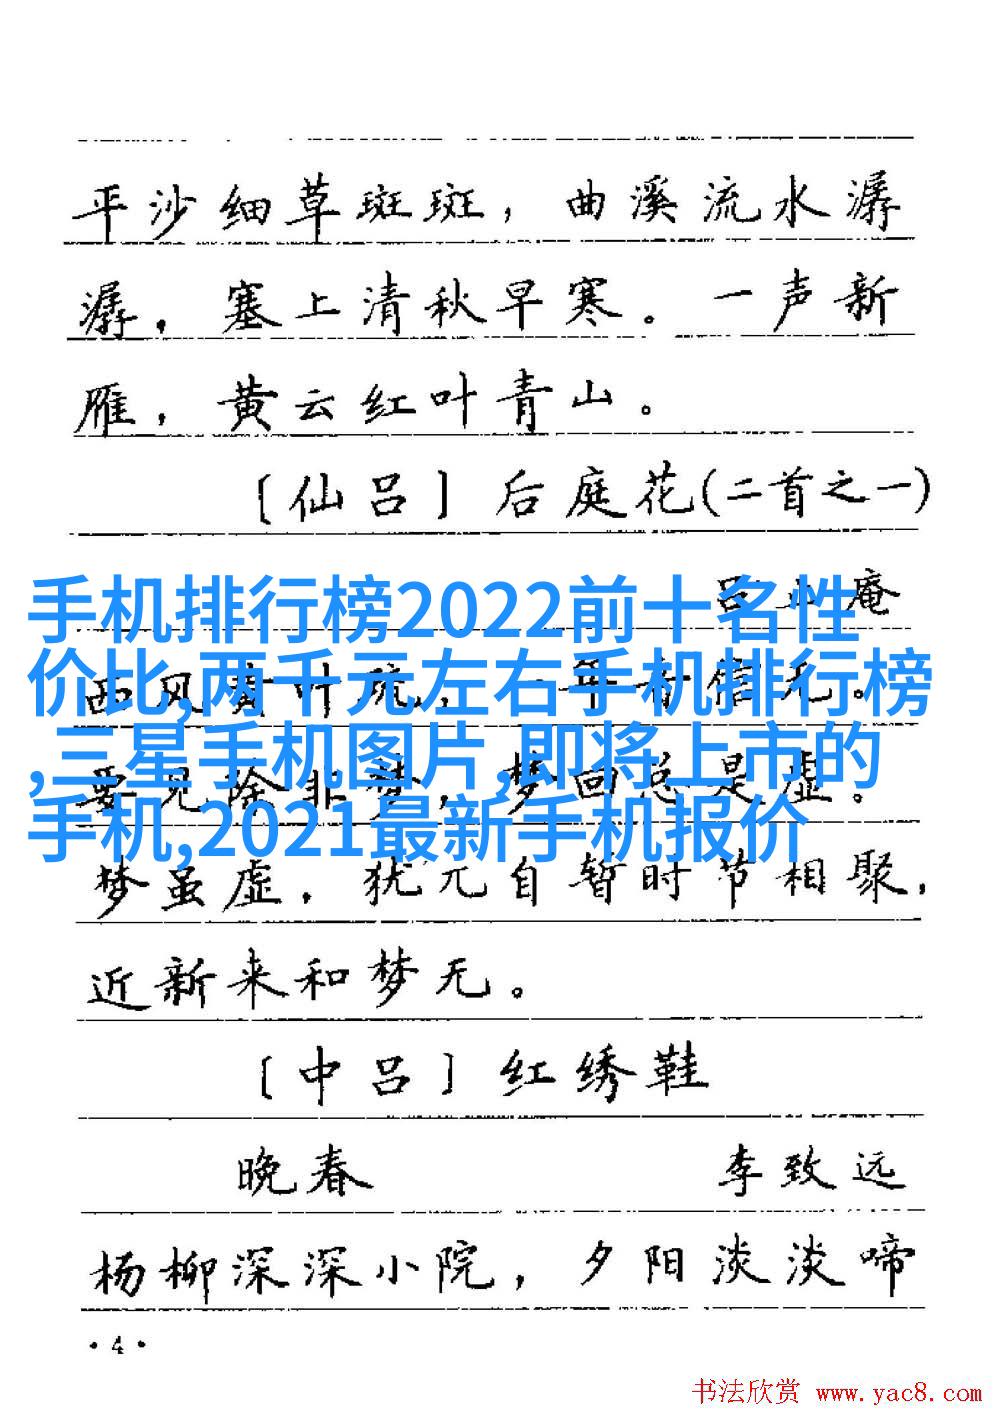 平沙细草斑斑，曲溪流水潺
潺，塞上清秋早寒。一声新
雁，黄云红叶青山。
〔仙吕〕后庭花(二首之一)
吕止庵
手机排行榜2022前十名性
西风黄叶疏，一年音信无。
价比,两千元左右手机排行榜
要见除非梦，梦回总是虚。
,三星手机图片,即将上市的
手机,2021最新手机报价
梦虽虚，犹兀自暂时节相聚，
近新来和梦无。
〔中吕〕红绣鞋
晚春 李致远
杨柳深深小院，夕阳淡淡啼
·4·
书法欣赏 www.yac8.com